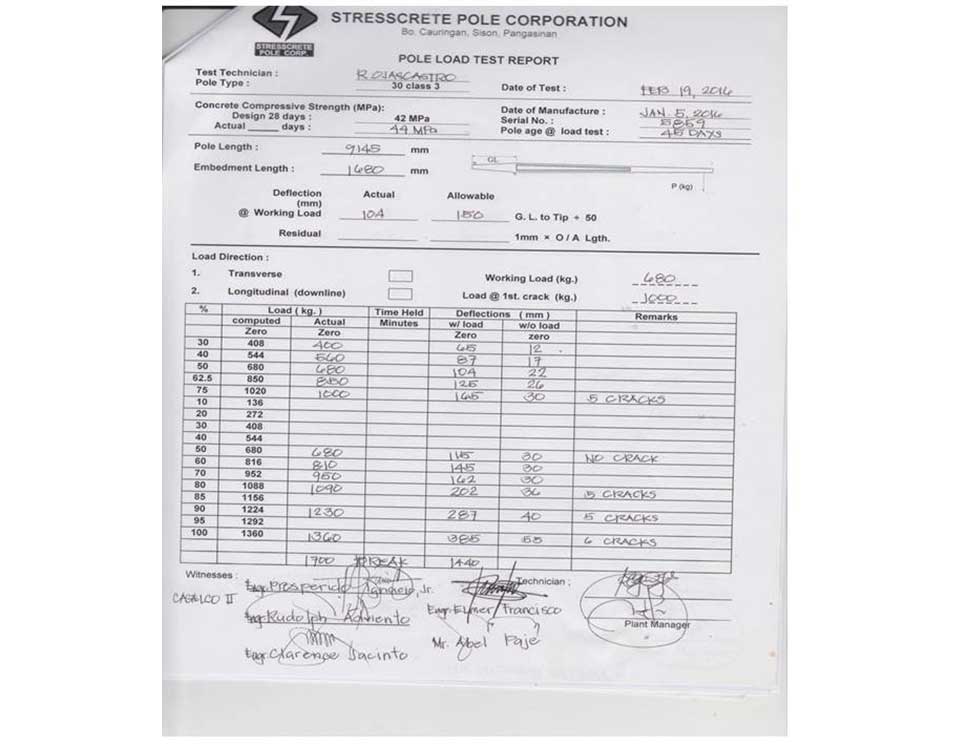 STRESSCRETE POLE CORPORATION
Bo. Cauringan, Sison, Pangasinan
STRESSCRETE
POLE CORP.
POLE LOAD TEST REPORT
Test Technician : R. OJASCASTRO
Pole Type : 30 class 3 Date of Test : FEB 19, 2016
Concrete Compressive Strength (MPa): Date of Manufacture : JAN. 5, 2016
Design 28 days : 42 MPa Serial No. : 5859
Actual ____ days : 44 MPa Pole age @ load test : 45 DAYS
Pole Length : 9145 mm
GL
Embedment Length : 1680 mm
P (kg)
Deflection Actual Allowable
(mm)
@ Working Load 104 150 G. L. to Tip ÷ 50
Residual 1mm × O / A Lgth.
Load Direction :
1. Transverse Working Load (kg.) 680
2. Longitudinal (downline) Load @ 1st. crack (kg.) 1000
% Load ( kg. ) Time Held Deflections ( mm ) Remarks
computed Actual Minutes w/ load w/o load
Zero Zero Zero zero
30 408 400 65 12
40 544 560 87 17
50 680 680 104 22
62.5 850 850 125 26
75 1020 1000 165 30 5 CRACKS
10 136
20 272
30 408
40 544
50 680 680 115 30 NO CRACK
60 816 810 145 30
70 952 950 162 30
80 1088 1090 202 36 5 CRACKS
85 1156
90 1224 1230 287 40 5 CRACKS
95 1292
100 1360 1360 385 55 6 CRACKS
1700 BREAK 1440
Witnesses : Technician :
Engr. Prosperido Agnacio, Jr.
CASALCO II
Engr. Elmer Francisco
Engr. Rudolph Adviento Plant Manager
Mr. Abel Paje
Engr. Clarence Jacinto